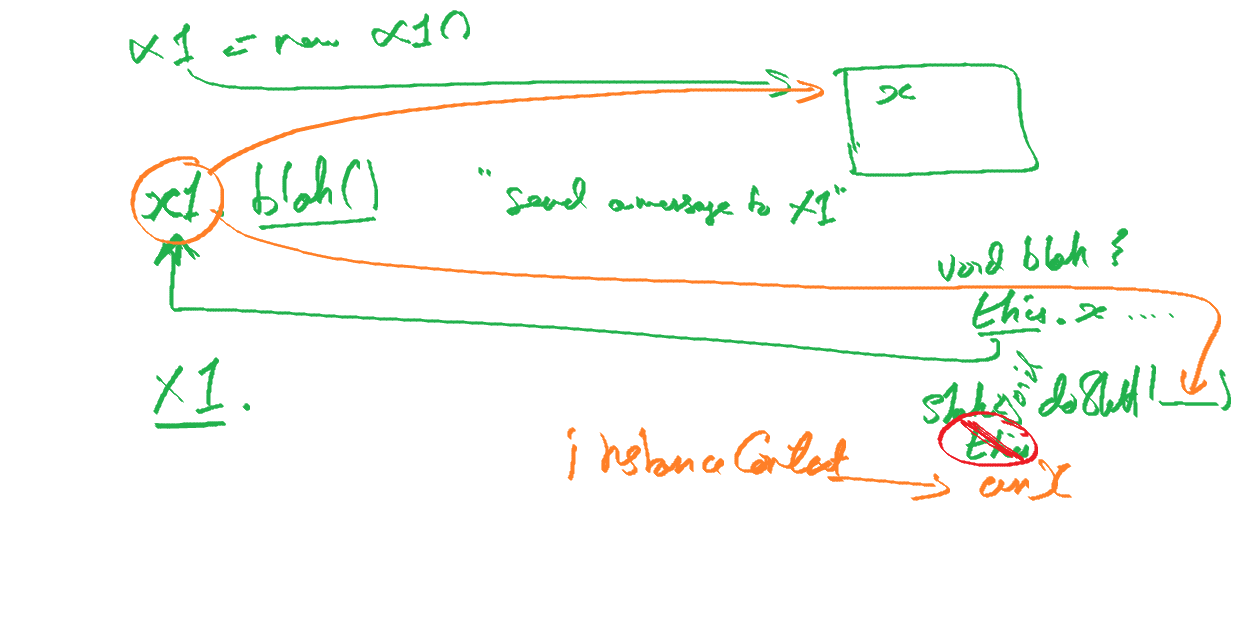 x1 = new x1()
x
x1 blah()
"send a message to x1"
void blah {
this.x .....
x1.
static void doStuff(___)
this
instance Context
an X